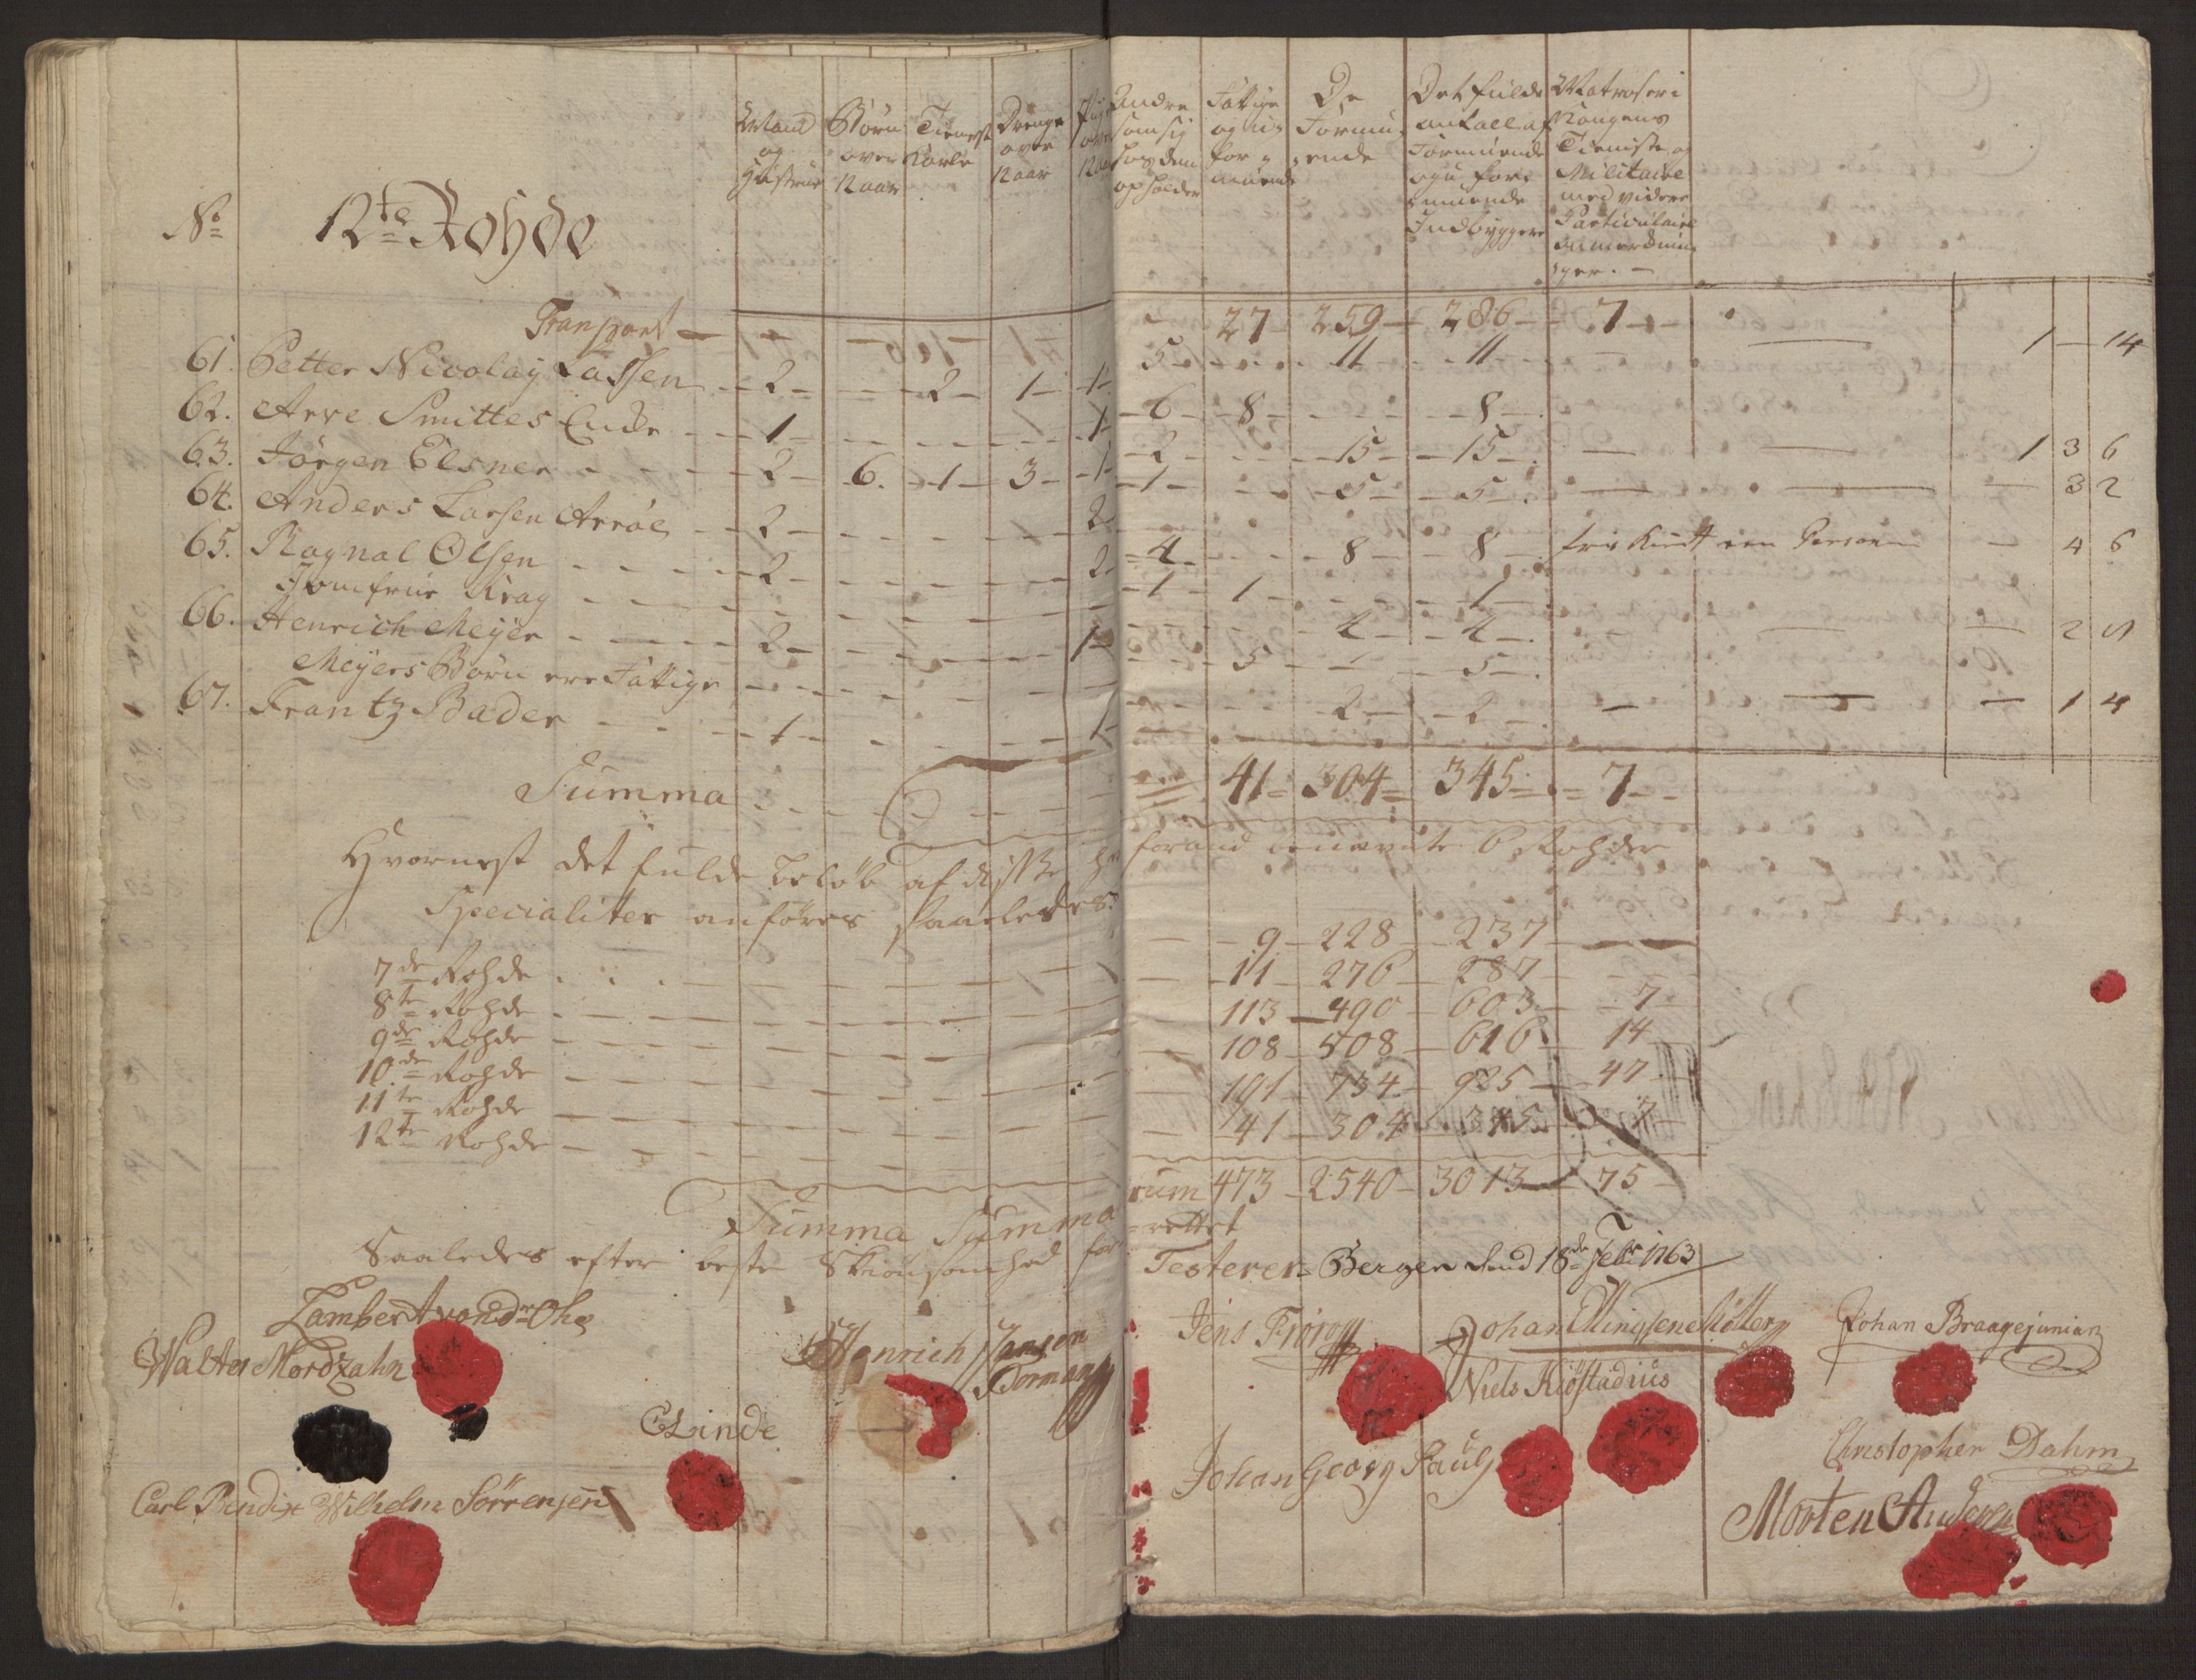 No 12te Rohde
Mand og Hustrue
Børn over 12 aar
Tieneste Karle
Drenge over 12 aar
over 12 aar
Andre som sig hos dem opholder
Fattige og uformuende
De Formuende
Det fulde antall af Formuende og uformuende Indbyggere
Matroser i Kongens Tieneste og Militaire med videre Particulaire anmerkninger.
Transport — 27 — 259 — 286 — 7
61. Petter Nicolay Lassen — 2 — 2 — 1 — 1 — 5 — 11 — 11 — 1 — 14
62. Arve Smittes Enke — 1 — 1 — 6 — 8 — 8
63. Jörgen Elsner — 2 — 6. — 1 — 3 — 1 — 2 — 15 — 15 — 1 3 6
64. Anders Larsen Arröe — 2 — 2 — 1 — 5 — 5 — 3 2
65. Ragnal Olsen — 2 — 2 — 4 — 8 — 8 — Person — 4 6
Jomfrue Krag — 1 — 1 — 1
66. Henrich Meyer — 2 — 1 — 4 — 4 — 2
Meyers Börn ere Fattige — 5 — 5
67. Frantz Bader — 1 — 1 — 2 — 2 — 1 4
Summa — 41 — 304 — 345 — 7
Hvornest det fulde beløb af disse foran benævnte 6 Rohder
Specialiter anföres saaledes:
7de Rohde — 9 — 228 — 237
8te Rohde — 11 — 276 — 287
9de Rohde — 113 — 490 — 603 — 7
10de Rohde — 108 — 508 — 616 — 14
11te Rohde — 191 — 734 — 925 — 47
12te Rohde — 41 — 304 — 345 — 7
Summa Summarum 473 — 2540 — 3013 — 75
Saaledes efter beste Skiönsomhed forrettet
Testerer Bergen dend 18de Febr 1763
Lambert vonder Ohe
Walter Mordzahn
Henrich Jansen Formann
CLinde
Carl Bendix Wilhelm Sörrensen
Jens
Johan Ellingsen Möller
Johan Braage junior
Niels Kiöstadius
Johan Georg Pauly
Christopher Dahm
Morten Andersen